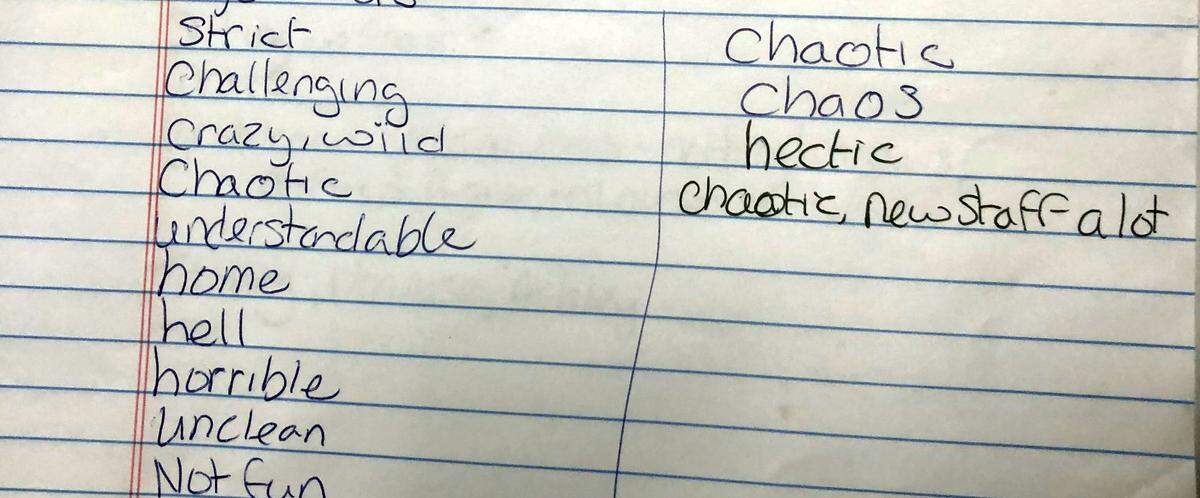 Strict
Challenging
Crazy, wild
Chaotic
understandable
home
hell
horrible
unclean
Not fun
Chaotic
Chaos
hectic
chaotic, new staff a lot